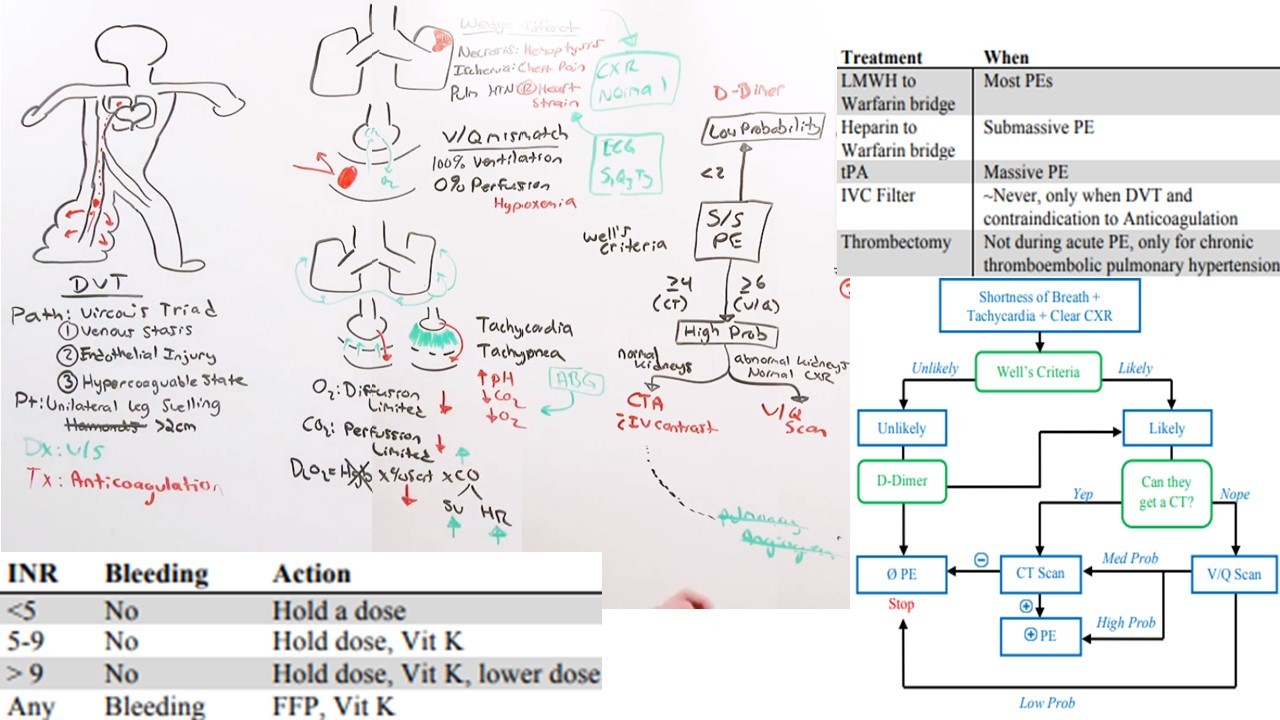 DVT
Path: Vircow's Triad
① Venous stasis
② Endothelial Injury
③ Hypercoaguable State
Pt: Unilateral leg Swelling
>2cm
Dx: U/S
Tx: Anticoagulation
Necrosis: Hemoptysis
Ischemia: Chest Pain
Pulm HTN Ⓡ Heart
Strain
V/Q mismatch
100% Ventilation
0% Perfusion
Hypoxemia
O₂
CXR
Normal
ECG
S₁Q₃T₃
Tachycardia
Tachypnea
↑ pH
↓ CO₂
↓ O₂
ABG
O₂: Diffusion
Limited ↓
CO₂: Perfussion
Limited ↓
D₂O₂ = Hgb x %sat x CO
SV HR
D-Dimer
Low Probability
<2
S/S
PE
Well's
Criteria
≥4
(CT)
≥6
(V/Q)
High Prob
normal
kidneys
abnormal kidneys
Normal CXR
CTA
c̄ IV contrast
V/Q
Scan
Treatment When
LMWH to Most PEs
Warfarin bridge
Heparin to Submassive PE
Warfarin bridge
tPA Massive PE
IVC Filter ~Never, only when DVT and
contraindication to Anticoagulation
Thrombectomy Not during acute PE, only for chronic
thromboembolic pulmonary hypertension
Shortness of Breath +
Tachycardia + Clear CXR
Unlikely Well's Criteria Likely
Unlikely Likely
D-Dimer
Can they
get a CT?
Yep Nope
Ø PE ⊖ CT Scan Med Prob V/Q Scan
Stop
⊕
⊕ PE High Prob
Low Prob
INR Bleeding Action
<5 No Hold a dose
5-9 No Hold dose, Vit K
> 9 No Hold dose, Vit K, lower dose
Any Bleeding FFP, Vit K